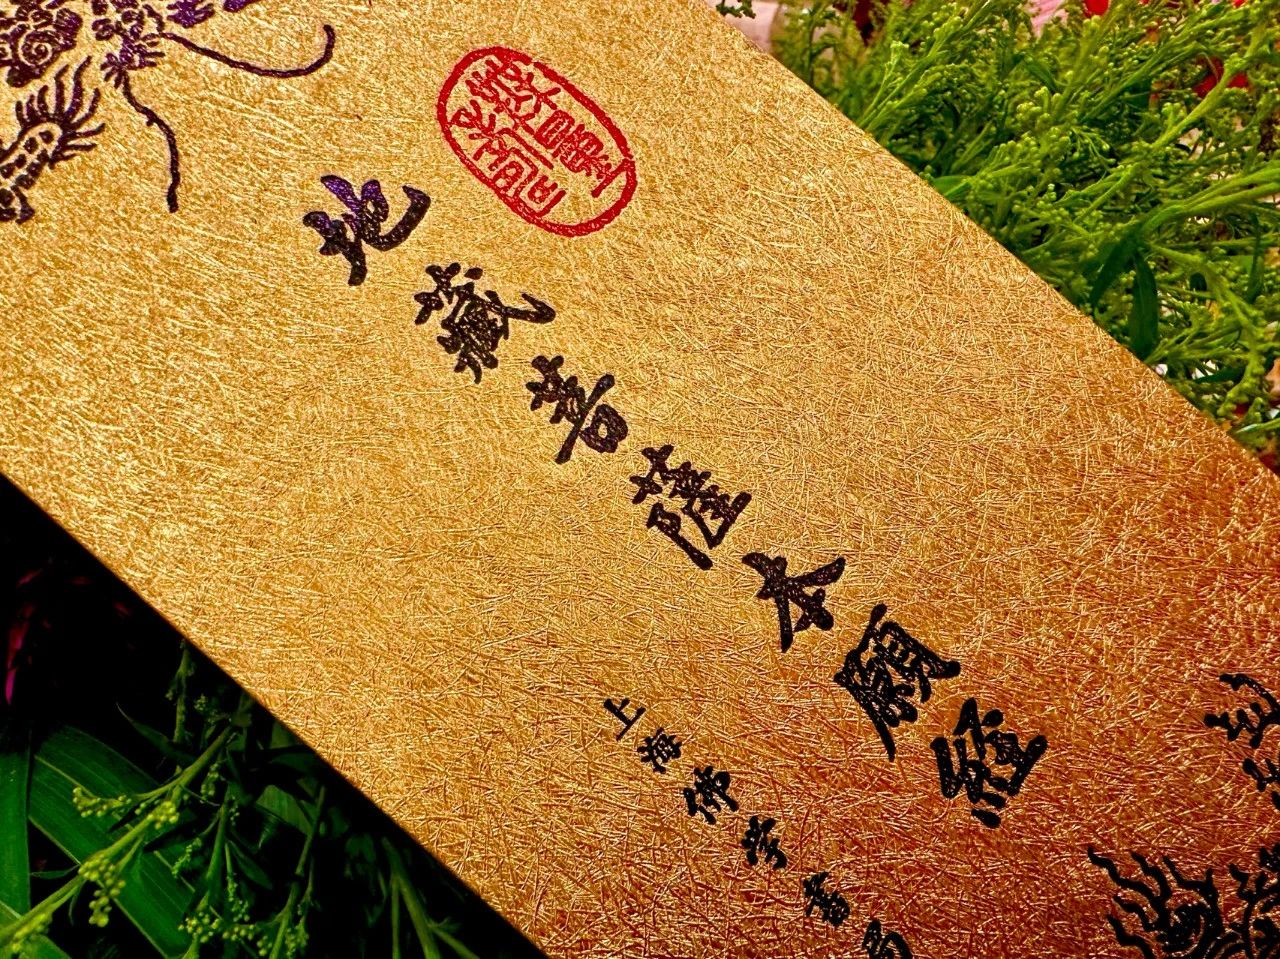 地藏菩薩本願經
上海佛学書局